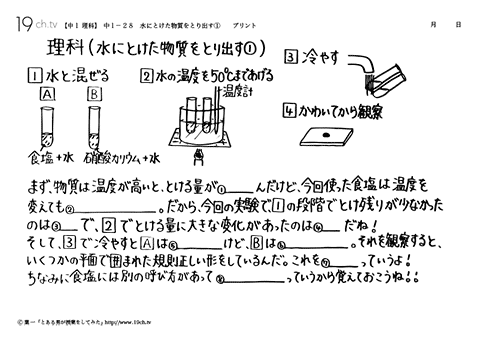 19 ch.tv 【中1 理科】 中1-28 水にとけた物質をとり出す① プリント 月 日
理科(水にとけた物質をとり出す①)
1 水と混ぜる
A B
食塩+水 硝酸カリウム+水
2 水の温度を50℃まであげる
温度計
3 冷やす
4 かわいてから観察
まず、物質は温度が高いと、とける量が①____んだけど、今回使った食塩は温度を
変えても②________。だから、今回の実験で、1の段階でとけ残りが少なかった
のは③____で、2でとける量に大きな変化があったのは④____だね!
そして、3で冷やすとAは⑤______けど、Bは⑥________。それを観察すると、
いくつかの平面で囲まれた規則正しい形をしているんだ。これを⑦______っていうよ!
ちなみに食塩には別の呼び方があって⑧________っていうから覚えておこうね!!
© 葉一「とある男が授業をしてみた」http://www.19ch.tv